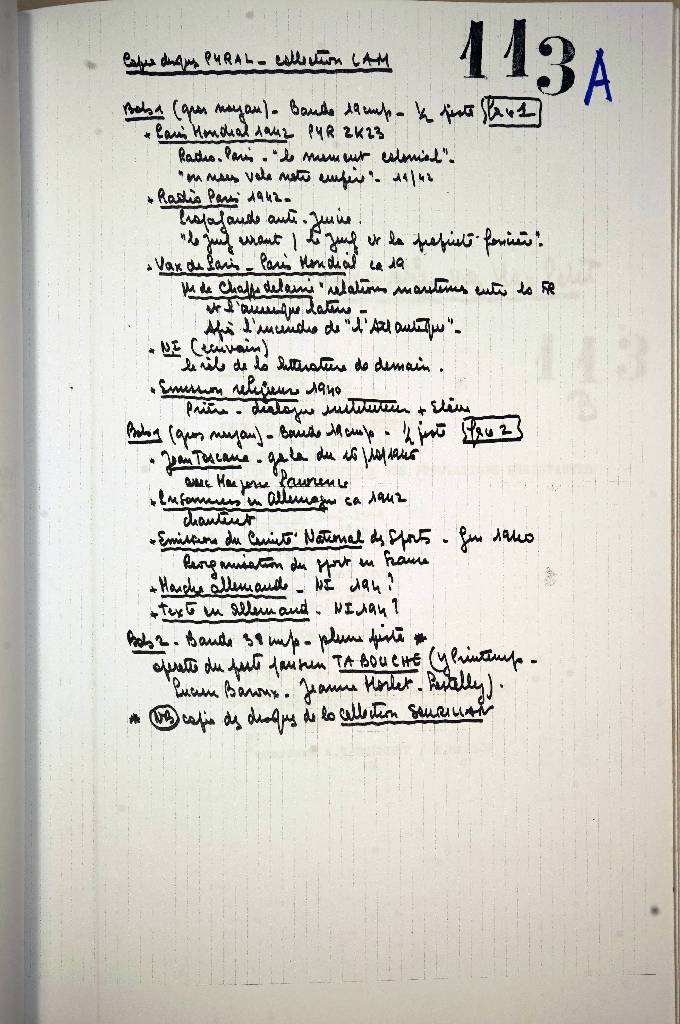 113 A
Copie disques PYRAL - collection LAM
Bob 1 (gros noyau) - Bande 19 cmp - 1/2 piste Piste 1
* Paris Mondial 1942 PYR 2K23
Radio-Paris - "le moment colonial" -
"on nous vole notre empire" - 11/42
* Radio Paris 1942 -
Propagande anti-juive.
"le juif errant / le juif et la propriété foncière".
* Voix de Paris - Paris Mondial ca 19
Mr de Chappedelaine "relations maritimes entre la FR
et l'amerique latine -
Après l'incendie de "l'Atlantique" -
* NI (écrivain)
le rôle de la litterature de demain.
* Emission religieuse 1940
Prière - dialogue instituteur + Elève
Bob 1 (gros noyau) - Bande 19 cmp - 1/2 piste Piste 2
* Jean Toscane - gala du 16/10/1945
avec Marjorie Lawrence
* Prisonniers en Allemagne ca 1942
chantent
* Emission du Comité National des Sports - 1940
Reorganisation du sport en France
* Marche allemande - NI 194?
* Texte en Allemand - NI 194?
Bob 2 - Bande 38 cmp - pleine piste *
operette du poste parisien TA BOUCHE (Y Printemps -
Lucien Baroux - Jeanne Morlet - Pestelly).
* NB copie des disques de la collection